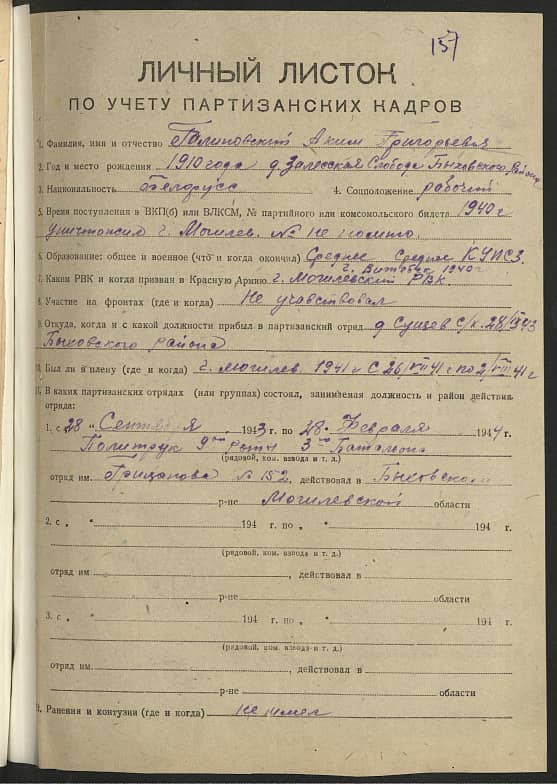 157
ЛИЧНЫЙ ЛИСТОК
ПО УЧЕТУ ПАРТИЗАНСКИХ КАДРОВ
1. Фамилия, имя и отчество Галиновский Аким Григорьевич
2. Год и место рождения 1910 года д. Залесская Слобода Быховского района
3. Национальность Белорусс 4. Соцположение рабочий
5. Время поступления в ВКП(б) или ВЛКСМ, № партийного или комсомольского билета 1940 г
уничтожил г. Могилев. № не помню
6. Образование: общее и военное (что и когда окончил) Среднее Среднее
г. Витебск 1940 г
7. Каким РВК и когда призван в Красную Армию г. Могилевский РВК
8. Участие на фронтах (где и когда) Не учавствовал
9. Откуда, когда и с какой должности прибыл в партизанский отряд д. Сущев с/с. 28/IX 43
Быховского района
10. Был ли в плену (где и когда) г. Могилев. 1941 г с 26/VII 41 г по 2/VIII 41 г
11. В каких партизанских отрядах (или группах) состоял, занимаемая должность и район действия
отряда:
1. с "28" Сентября 1943 г. по 28 Февраля 1944 г.
Политрук 9ой роты 3го Батальона
(рядовой, ком. взвода и т. д.)
отряд им. Гришанова № 152, действовал в Быховском
р-не Могилевской области
2. с " " 194 г. по " " 194 г.
(рядовой, ком. взвода и т. д.)
отряд им , действовал в
р-не области
3. с " " 194 г. по " " 194 г.
(рядовой, ком. взвода и т. д.)
отряд им. , действовал в
р-не области
12. Ранения и контузии (где и когда) не имел